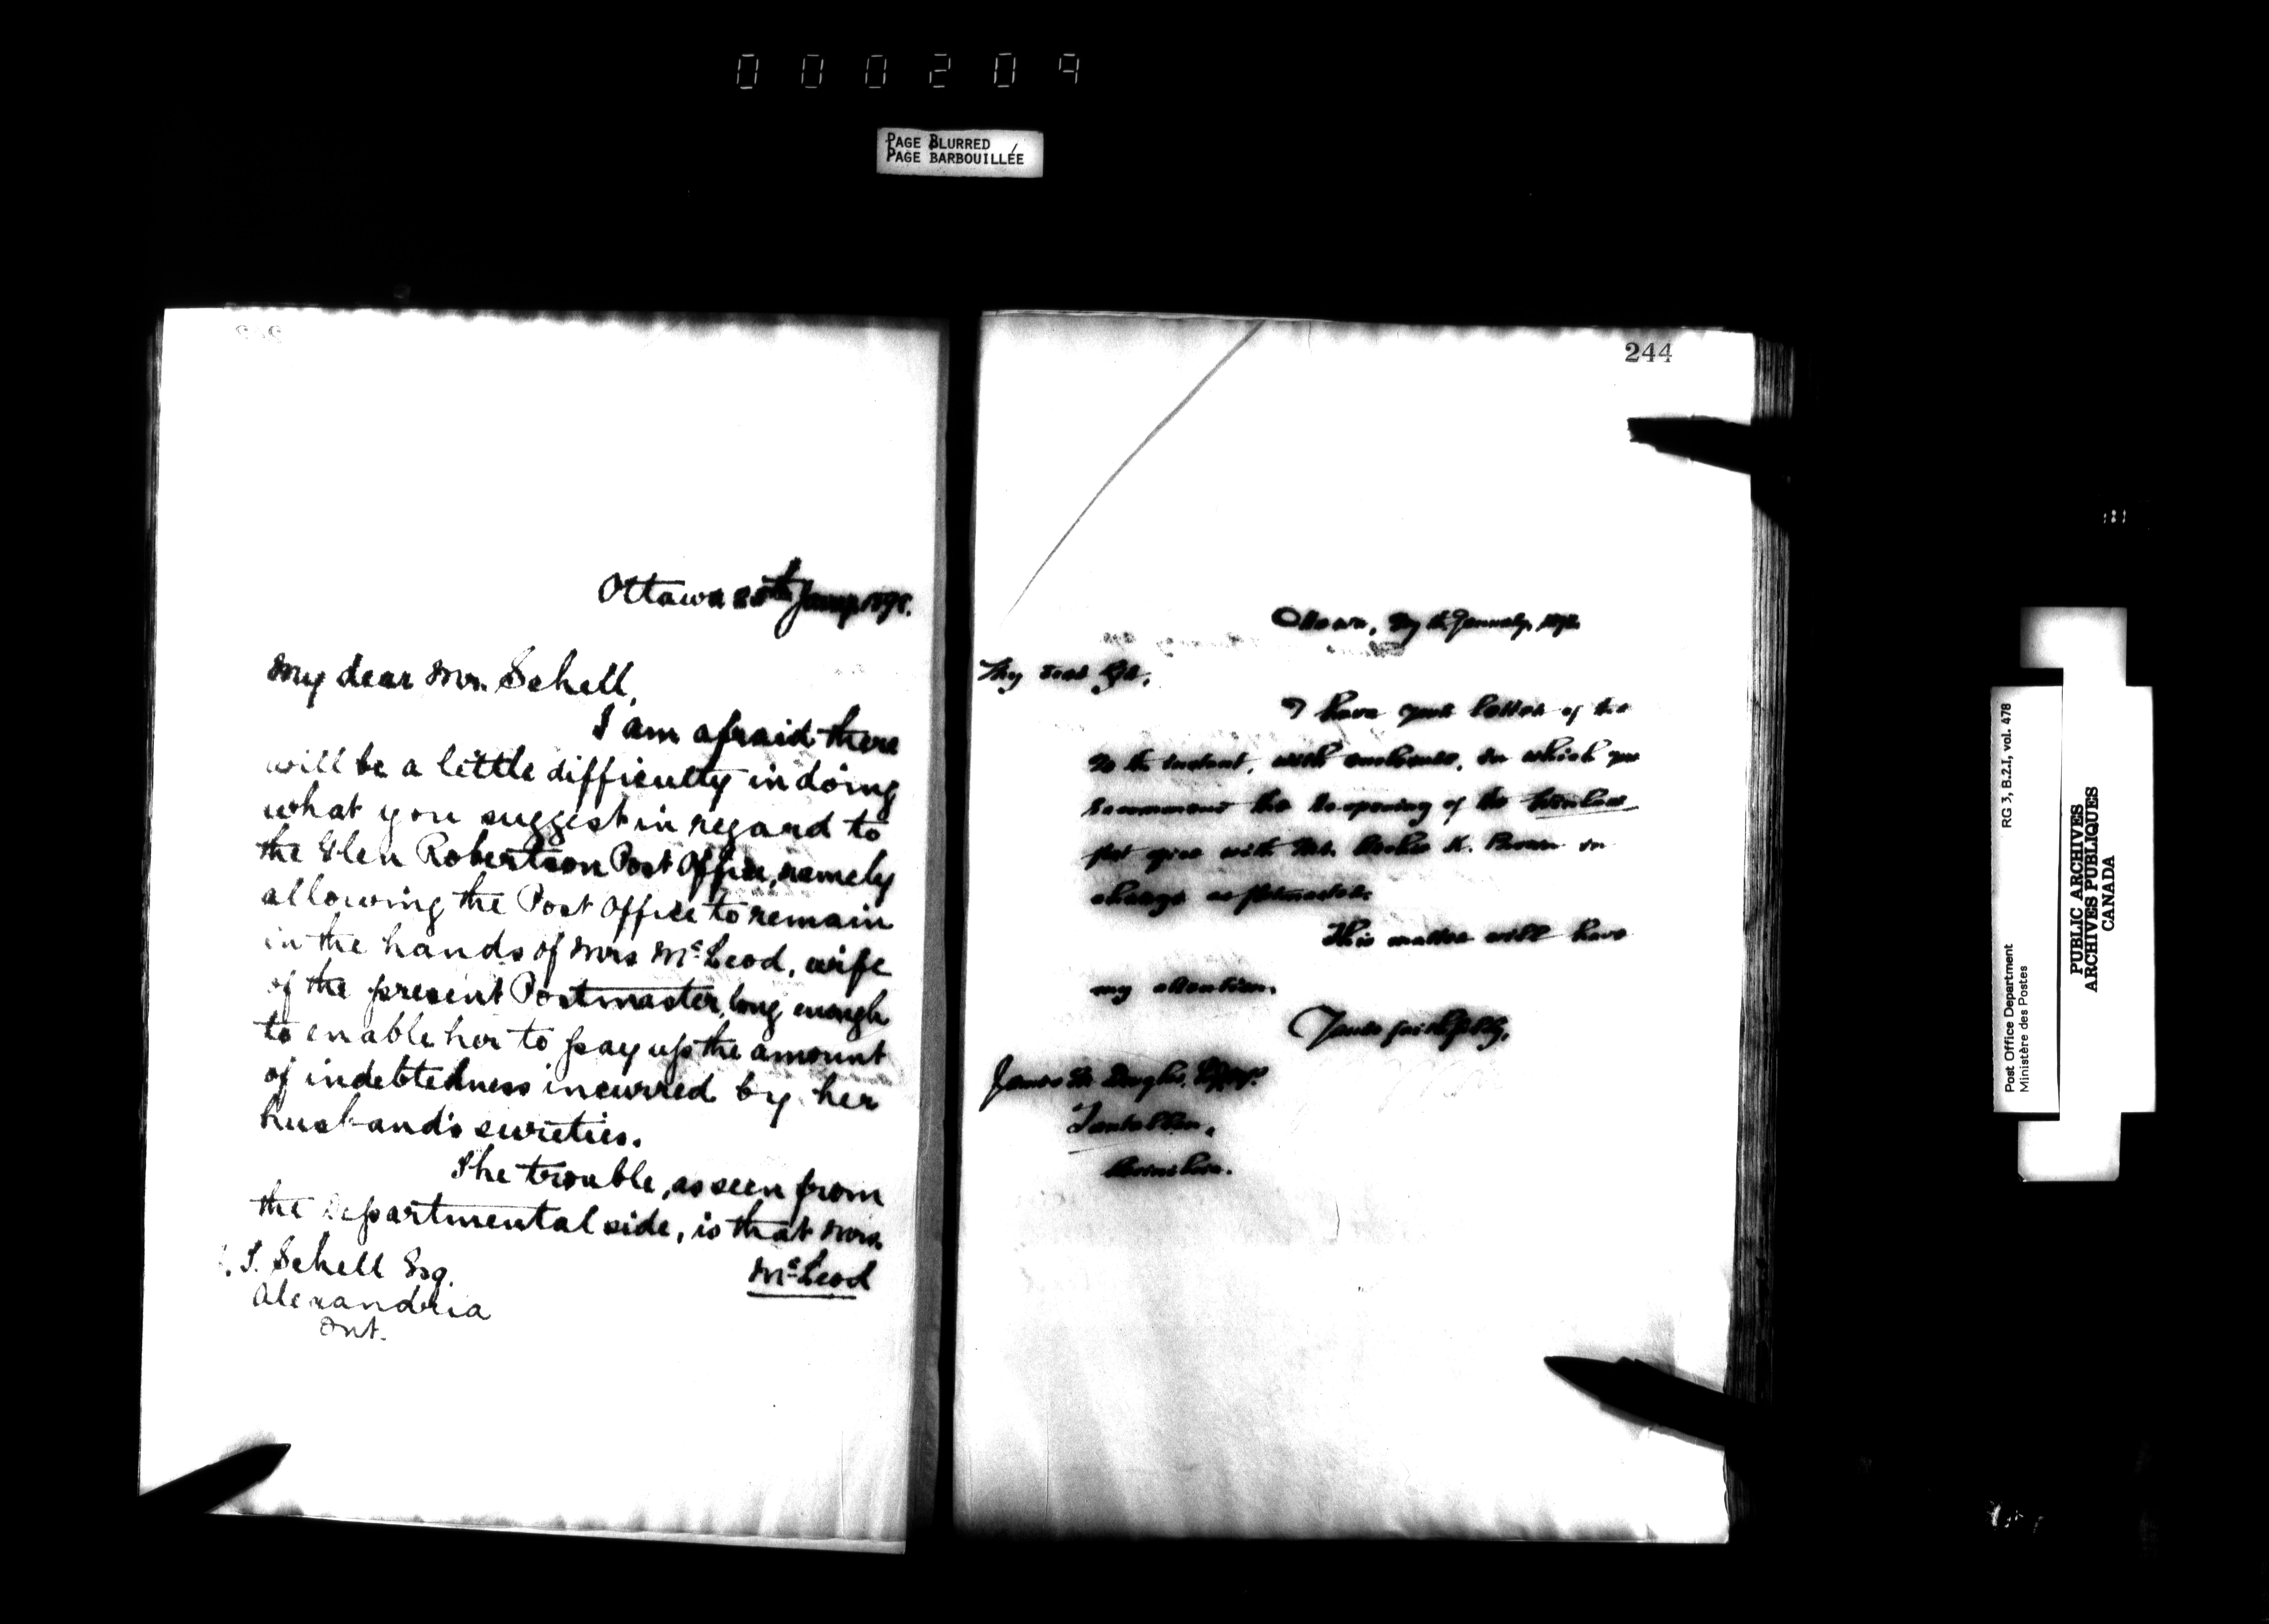 000209
PAGE BLURRED
PAGE BARBOUILLÉE
Ottawa Jany 189
My dear Mr. Schell,
I am afraid there
will be a little difficulty in doing
what you suggest in regard to
the Glen Robertson Post Office, namely
allowing the Post Office to remain
in the hands of Mrs McLeod, wife
of the present Postmaster, long enough
to enable her to pay up the amount
of indebtedness incurred by her
husband's sureties.
The trouble, as seen from
the Departmental side, is that Mrs.
McLeod
J. T. Schell Esq.
Alexandria
Ont.
244
Ottawa, January, 189
My dear Sir,
I have your letter of the
instant, with enclosure, in which you
recommend the re-opening of the
post office with Mr. K. Brown in
charge as postmaster.
This matter will have
my attention.
Yours faithfully,
James M. Douglas, Esq., M.P.
Tantallon,
Assiniboia.
Post Office Department
Ministère des Postes
RG 3, B.2.I, vol. 478
PUBLIC ARCHIVES
ARCHIVES PUBLIQUES
CANADA